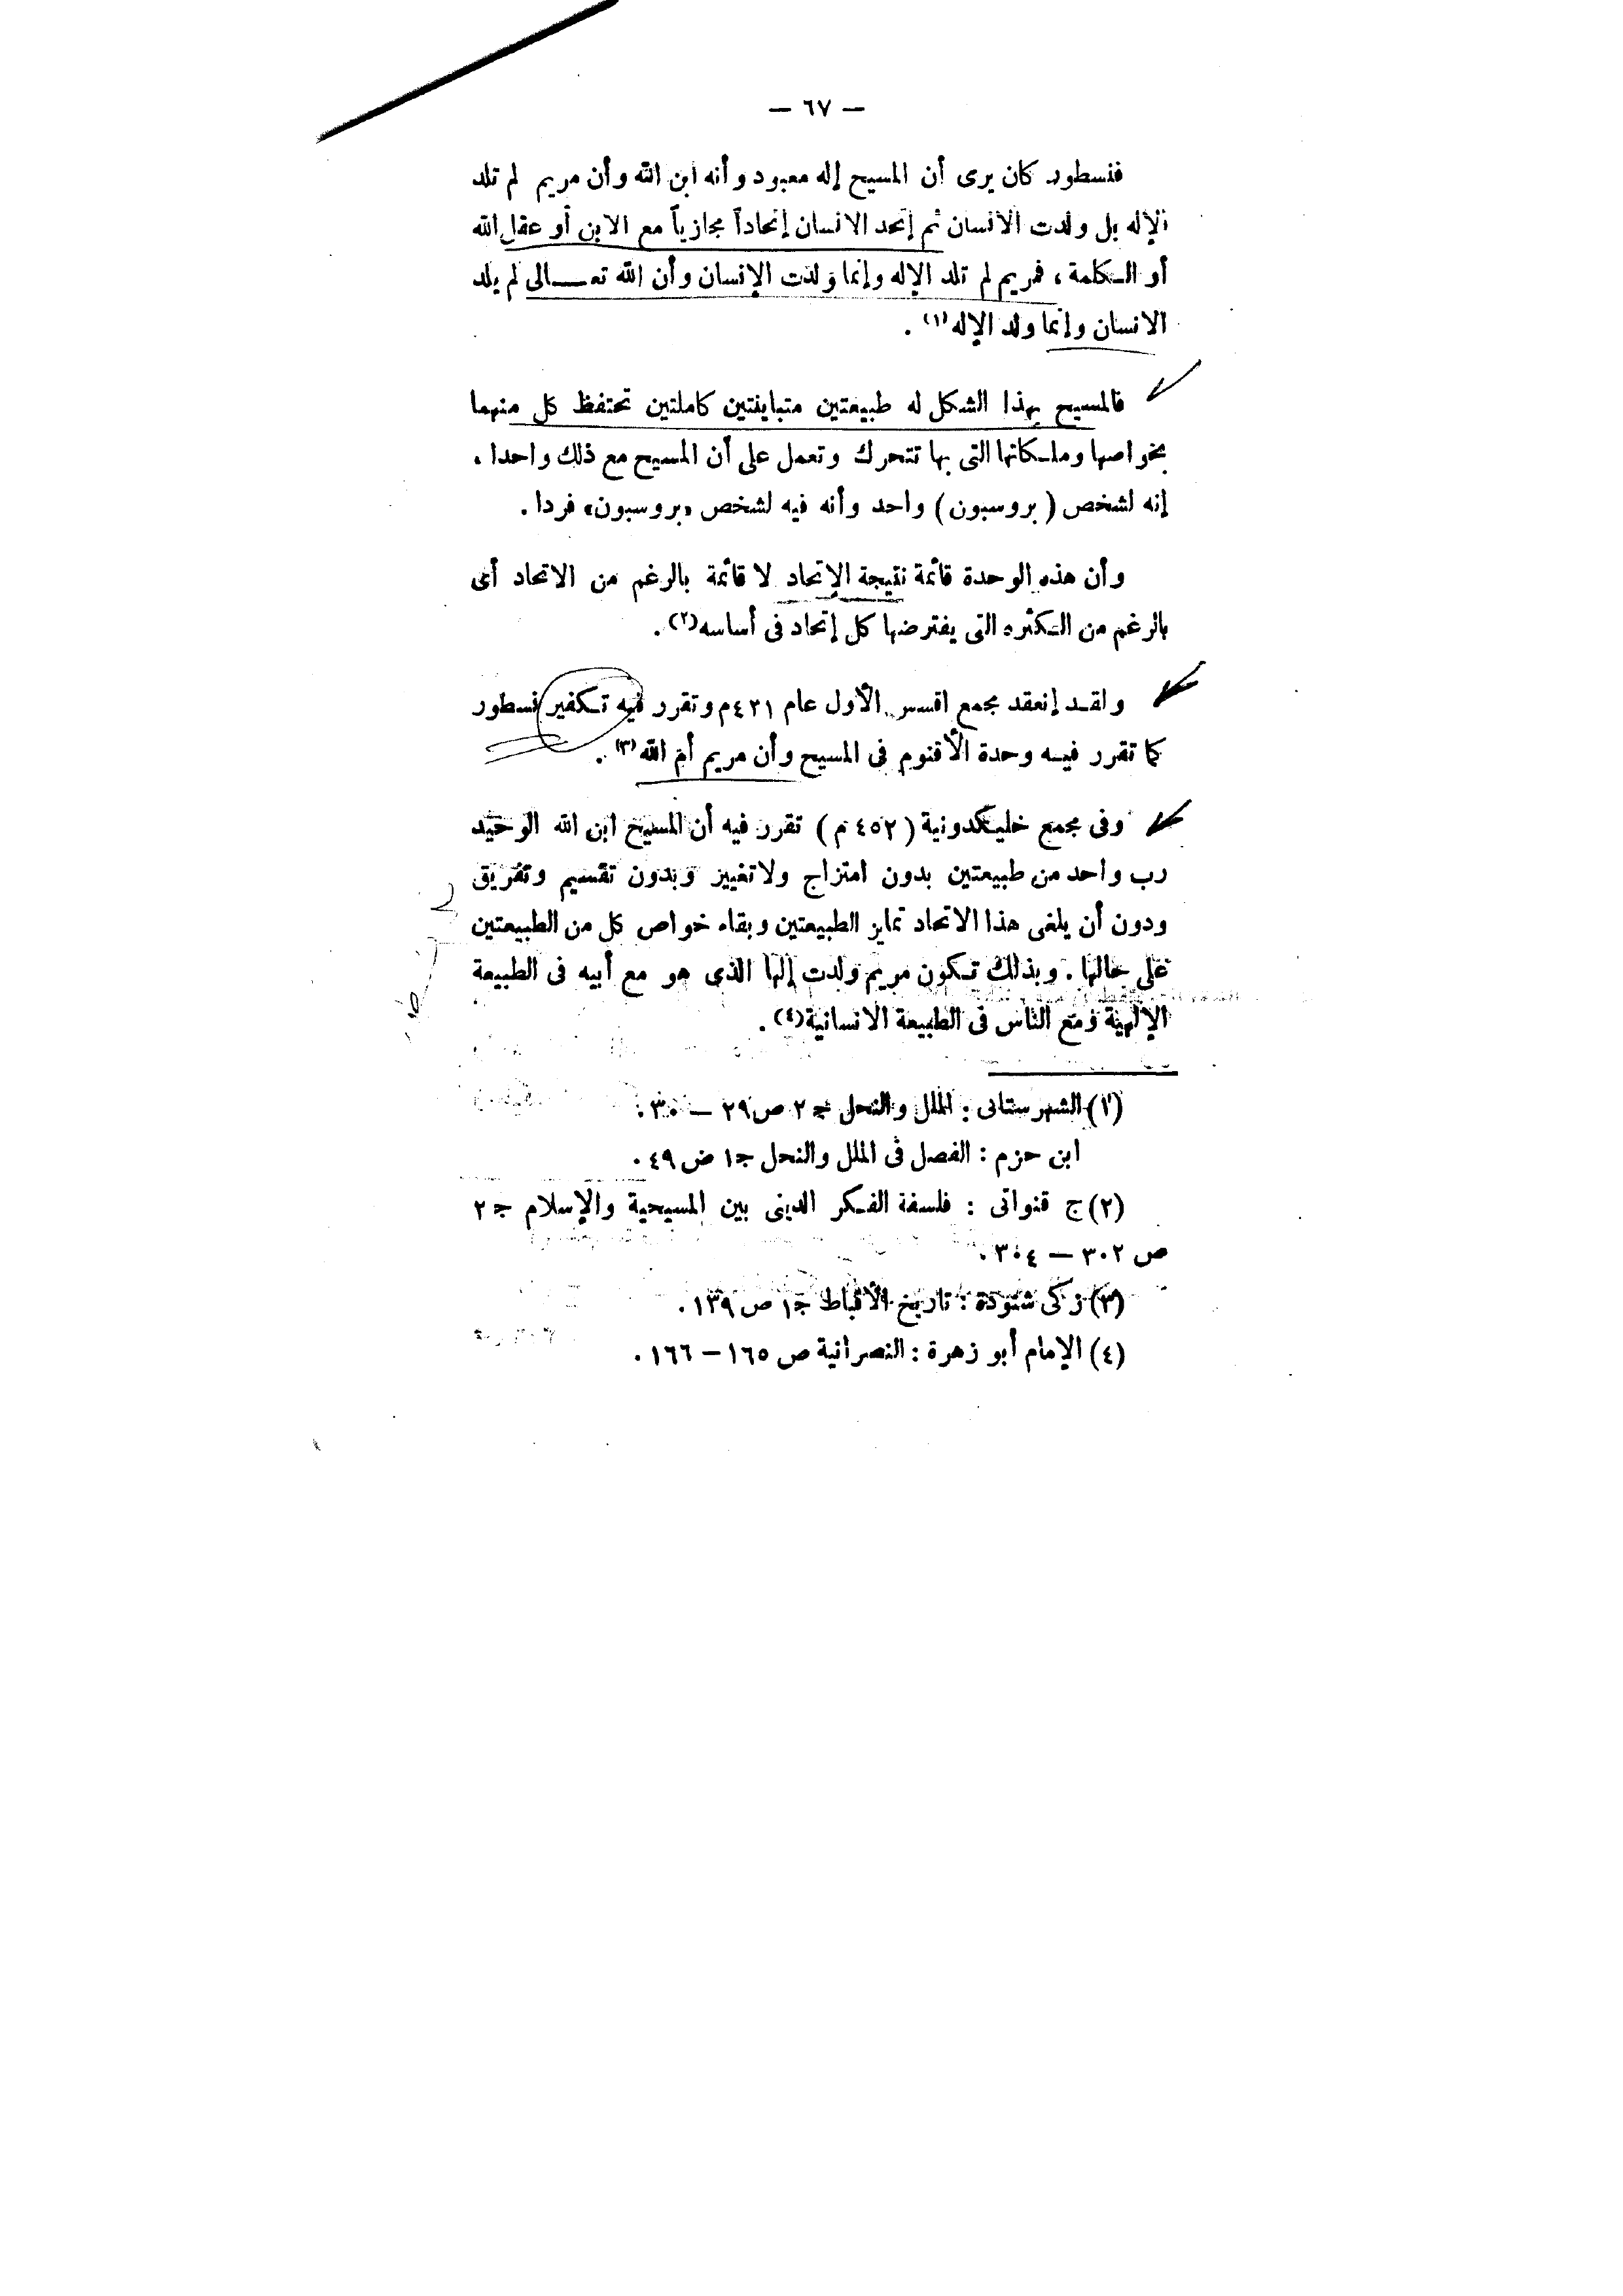 — ٦٧ —
فنسطور كان يرى أن المسيح إله معبود وأنه ابن الله وأن مريم لم تلد
الإله بل ولدت الانسان ثم إتحد الانسان إتحاداً مجازياً مع الابن أو عقل الله
أو الكلمة ، فمريم لم تلد الإله وإنما ولدت الإنسان وأن الله تعالى لم يلد
الانسان وإنما ولد الإله (١) .
فالمسيح بهذا الشكل له طبيعتين متباينتين كاملتين تحتفظ كل منهما
بخواصها وملكاتها التى بها تتحرك وتعمل على أن المسيح مع ذلك واحدا .
إنه لشخص ( بروسبون ) واحد وأنه فيه لشخص «بروسبون» فردا .
وأن هذه الوحدة قائمة نتيجة الإتحاد لا قائمة بالرغم من الاتحاد أى
بالرغم من الكثره التى يفترضها كل إتحاد فى أساسه (٢) .
ولقد إنعقد مجمع افسس الأول عام ٤٣١م وتقرر فيه تكفير نسطور
كما تقرر فيه وحدة الأقنوم فى المسيح وأن مريم أم الله (٣) .
وفى مجمع خليكدونية ( ٤٥٢ م ) تقرر فيه أن المسيح ابن الله الوحيد
رب واحد من طبيعتين بدون امتزاج ولا تغيير وبدون تقسيم وتفريق
ودون أن يلغى هذا الاتحاد تمايز الطبيعتين وبقاء خواص كل من الطبيعتين
على حالها . وبذلك تكون مريم ولدت إلها الذى هو مع أبيه فى الطبيعة
الإلهية ومع الناس فى الطبيعة الانسانية (٤) .
(١) الشهرستانى : الملل والنحل ج ٢ ص ٢٩ — ٣٠ .
ابن حزم : الفصل فى الملل والنحل ج ١ ص ٤٩ .
(٢) ج قنواتى : فلسفة الفكر الدينى بين المسيحية والإسلام ج ٢
ص ٣٠٢ — ٣٠٤ .
(٣) زكى شنودة : تاريخ الأقباط ج ١ ص ١٣٩ .
(٤) الإمام أبو زهرة : النصرانية ص ١٦٥ — ١٦٦ .